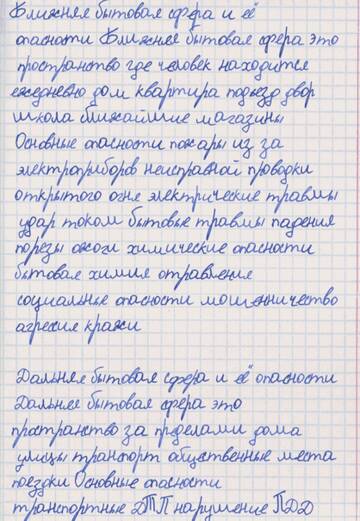 Ближняя бытовая сфера и её
опасности Ближняя бытовая сфера это
пространство где человек находится
ежедневно дом квартира подъезд двор
школа ближайшие магазины
Основные опасности пожары из за
электроприборов неисправной проводки
открытого огня электрические травмы
удар током бытовые травмы падения
порезы ожоги химические опасности
бытовая химия отравления
социальные опасности мошенничество
агрессия кражи

Дальняя бытовая сфера и её опасности
Дальняя бытовая сфера это
пространство за пределами дома
улицы транспорт общественные места
поездки Основные опасности
транспортные ДТП нарушение ПДД